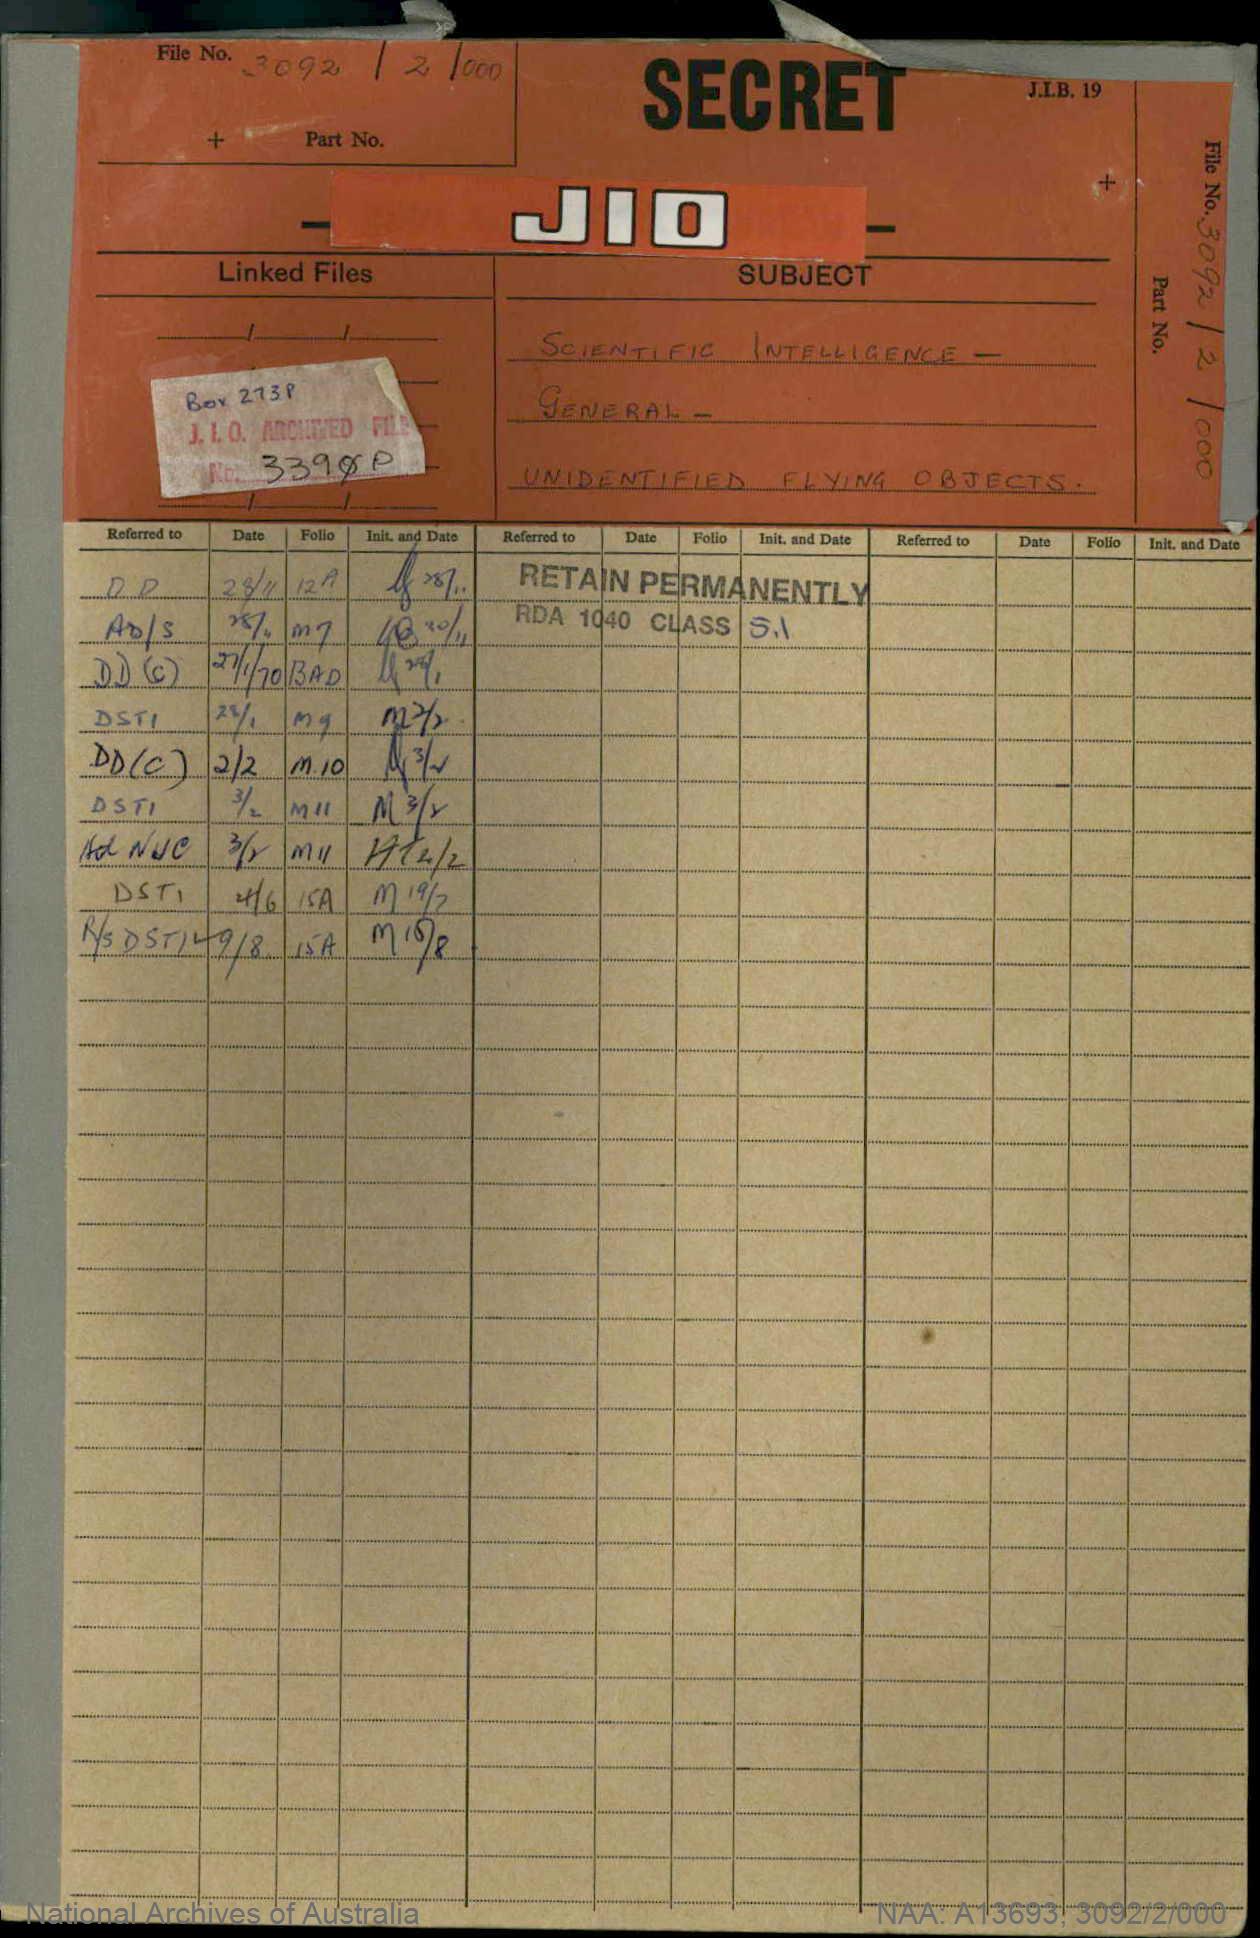 File No. 3092 / 2 / 000
SECRET
J.I.B. 19
+ Part No.
+
JIO
Linked Files
SUBJECT
SCIENTIFIC INTELLIGENCE —
GENERAL —
UNIDENTIFIED FLYING OBJECTS.
Box 273P
J. I. O. ARCHIVED FILE
No.
File No. 3092 / 2 / 000
Part No.
Referred to Date Folio Init. and Date Referred to Date Folio Init. and Date Referred to Date Folio Init. and Date
RETAIN PERMANENTLY
RDA 1040 CLASS S.1
DD 28/11 12A 28/11
AD/S 28/11 M7 30/11
DD(C) 27/1/70 BAD
DSTI 28/1 M9 M 2/2
DD(C) 2/2 M.10 3/2
DSTI 3/2 M11 M 3/2
3/2 M11
DSTI 15A M 19/7
R/S DSTI 9/8 15A M
National Archives of Australia
NAA: A13693, 3092/2/000